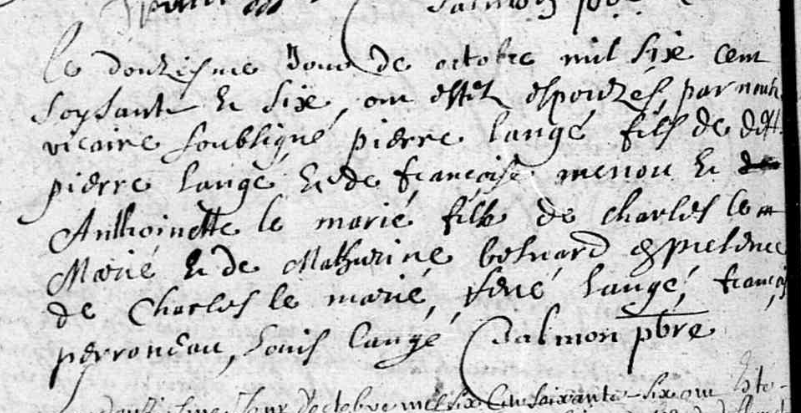 Salmon pbre
Le douziesme Jour de octobre mil six cent
soysante et six, ont estez espouzés, par nous
vicaire soubligné pierre langé fils de deff.
pierre langé et de françoise menou et de
Anthoinette le marié fille de charles le
Marié et de Mathurine besnard en presence
de Charles le marié, rené langé, françois
perroneau, Louis langé Salmon pbre
Jour doctobre mil six cent soixante six ont